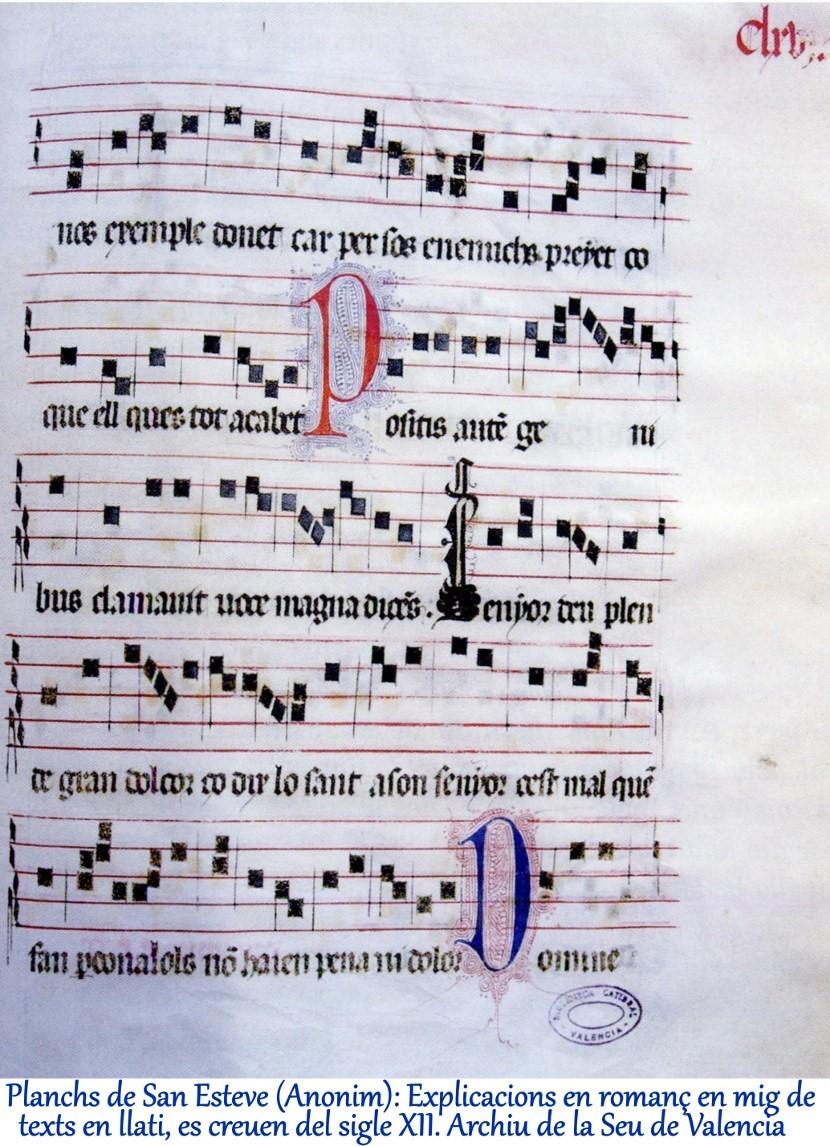 clxv
nos exemple donet car per sos enemichs preyet co
que ell ques tot acabet Positis autē ge ni
bus clamauit uoce magna dicēs. Senyor deu plen
de gran dolçor co dix lo sant a son senyor cest mal quē
fan perdonalols nō haien pena ni dolor Domine
BIBLIOTECA CATEDRAL
VALENCIA
Planchs de San Esteve (Anonim): Explicacions en romanç en mig de
texts en llati, es creuen del sigle XII. Archiu de la Seu de Valencia